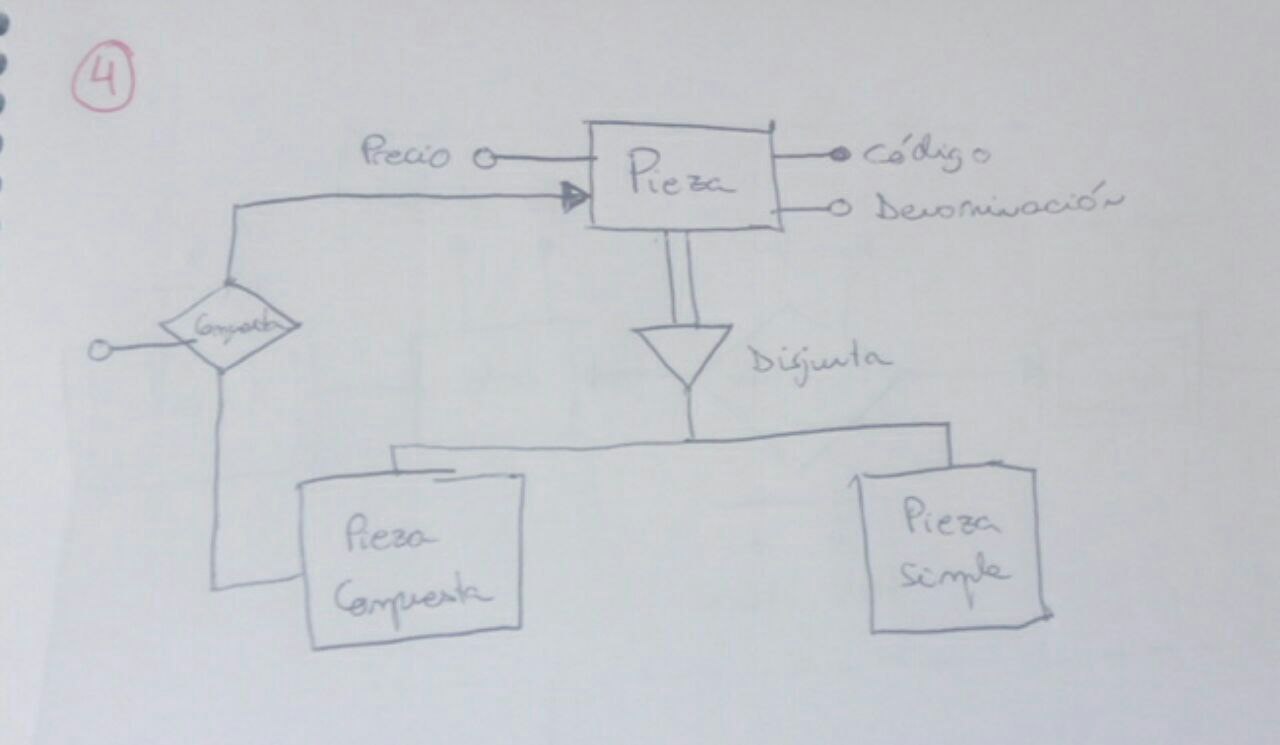 4
Precio
Pieza
Código
Denominación
Compuesta
Disjunta
Pieza
Compuesta
Pieza
Simple